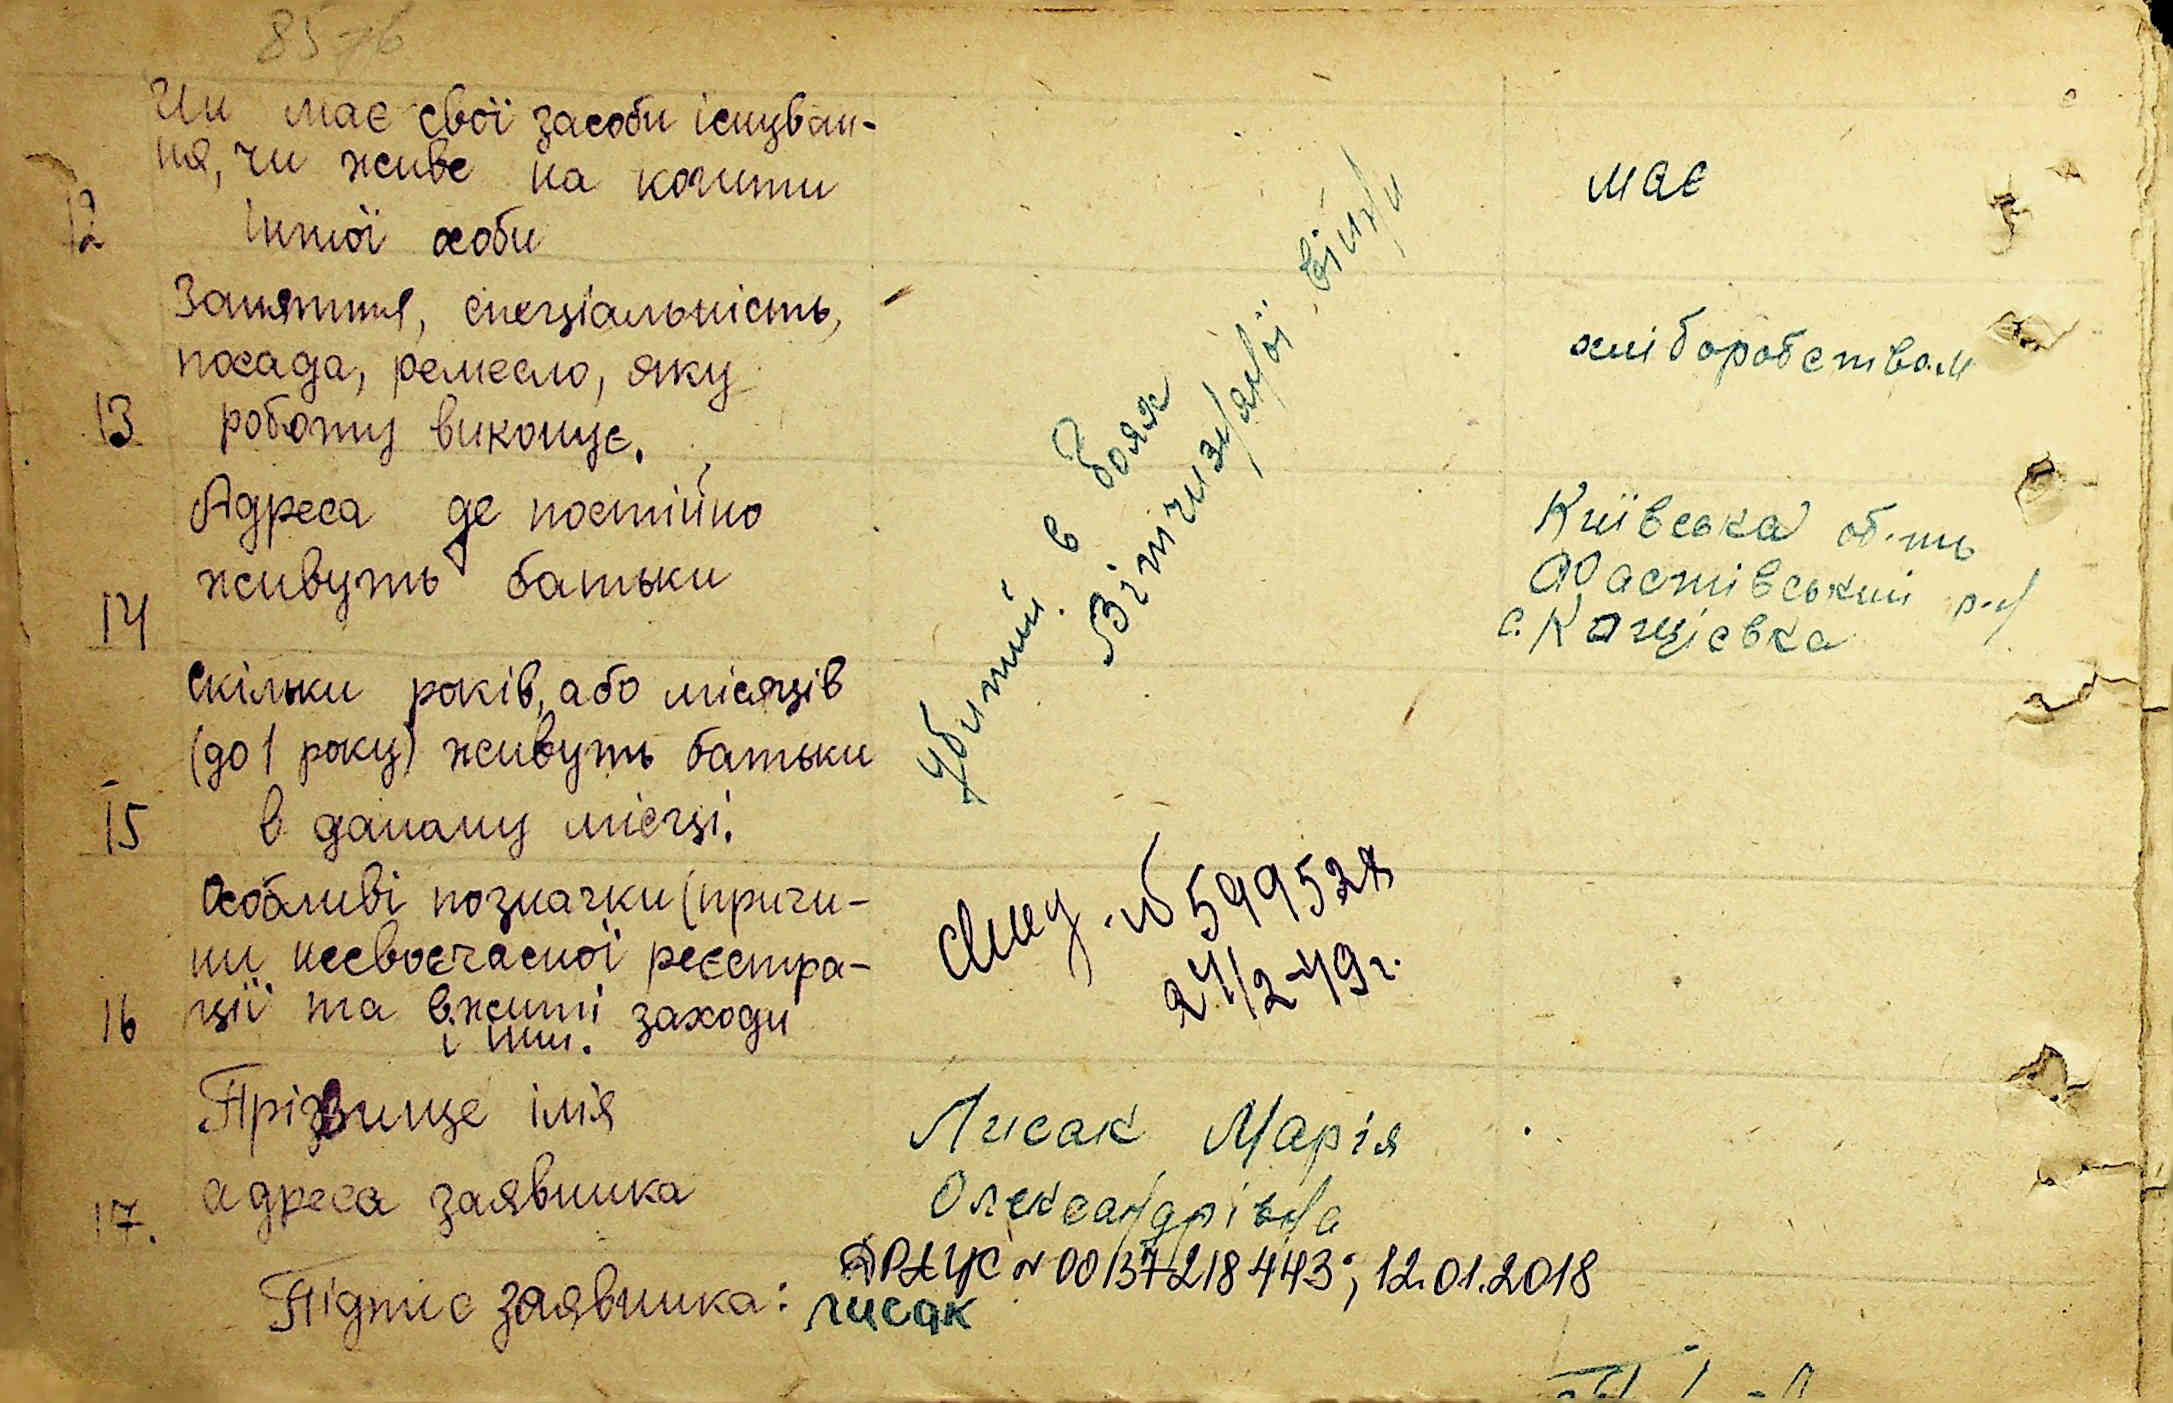 85зв
Чи має свої засоби існуван-
ня, чи живе на кошти
12 іншої особи
має
Заняття, спеціальність,
посада, ремесло, яку
13 роботу виконує.
хліборобством
Адреса де постійно
живуть батьки
14
Київська об.ть
Фастівський р-н
с. Кощіевка
Скільки років, або місяців
(до 1 року) живуть батьки
15 в даному місці.
Убитий в боях
Вітчизняної війни
Особливі позначки (причи-
ни несвоєчасної реєстра-
16 ції та вжиті заходи
і інш.
№ 599527
24/2-49г.
Прізвище імія
17. адреса заявника
Лисак Марія
Олександрівна
ДРАЦС № 00137218443; 12.01.2018
Підпис заявника: лисак